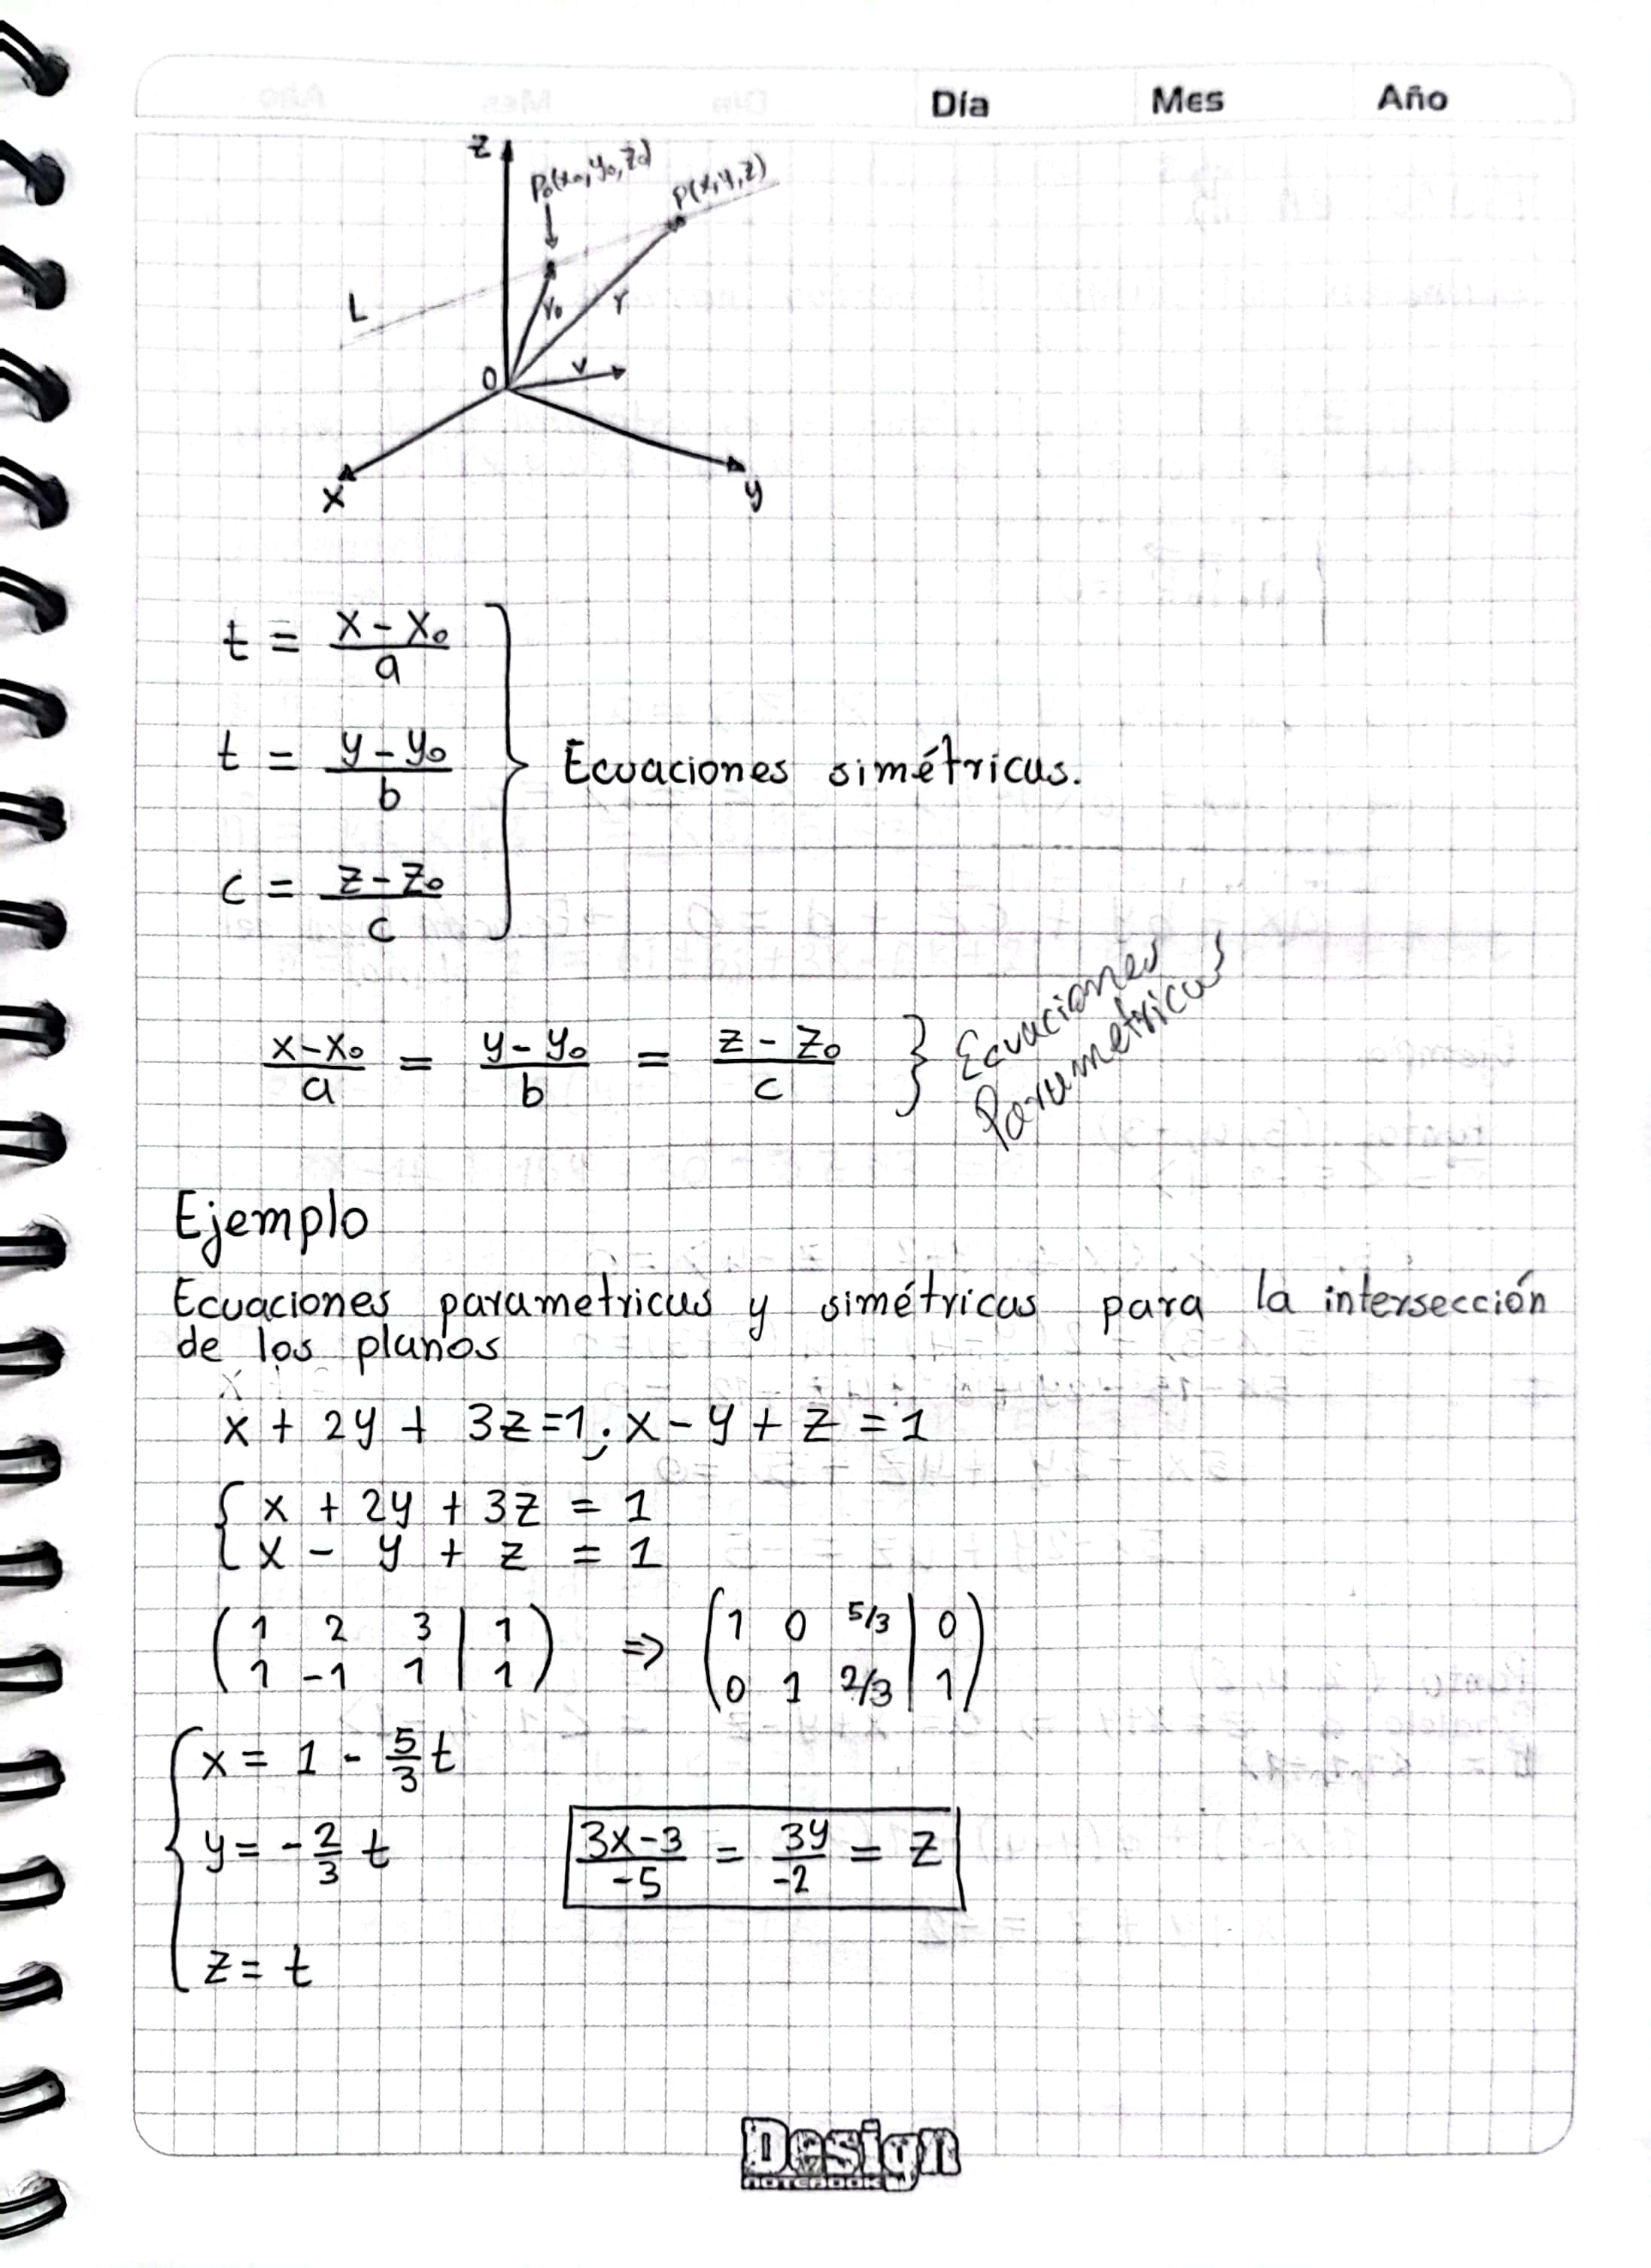 Día Mes Año
z
P₀(x₀, y₀, z₀)
P(x, y, z)
L
r₀
r
v
O
x
y
t = (x - x₀)/a
t = (y - y₀)/b
Ecuaciones simétricas.
c = (z - z₀)/c
(x - x₀)/a = (y - y₀)/b = (z - z₀)/c } Ecuaciones
Parametricas
Ejemplo
Ecuaciones parametricas y simétricas para la intersección
de los planos
x + 2y + 3z = 1; x - y + z = 1
x + 2y + 3z = 1
x - y + z = 1
(1 2 3 | 1) ⇒ (1 0 5/3 | 0)
(1 -1 1 | 1) (0 1 2/3 | 1)
x = 1 - 5/3 t
y = -2/3 t
(3x - 3)/-5 = 3y/-2 = z
z = t
Design
NOTEBOOK